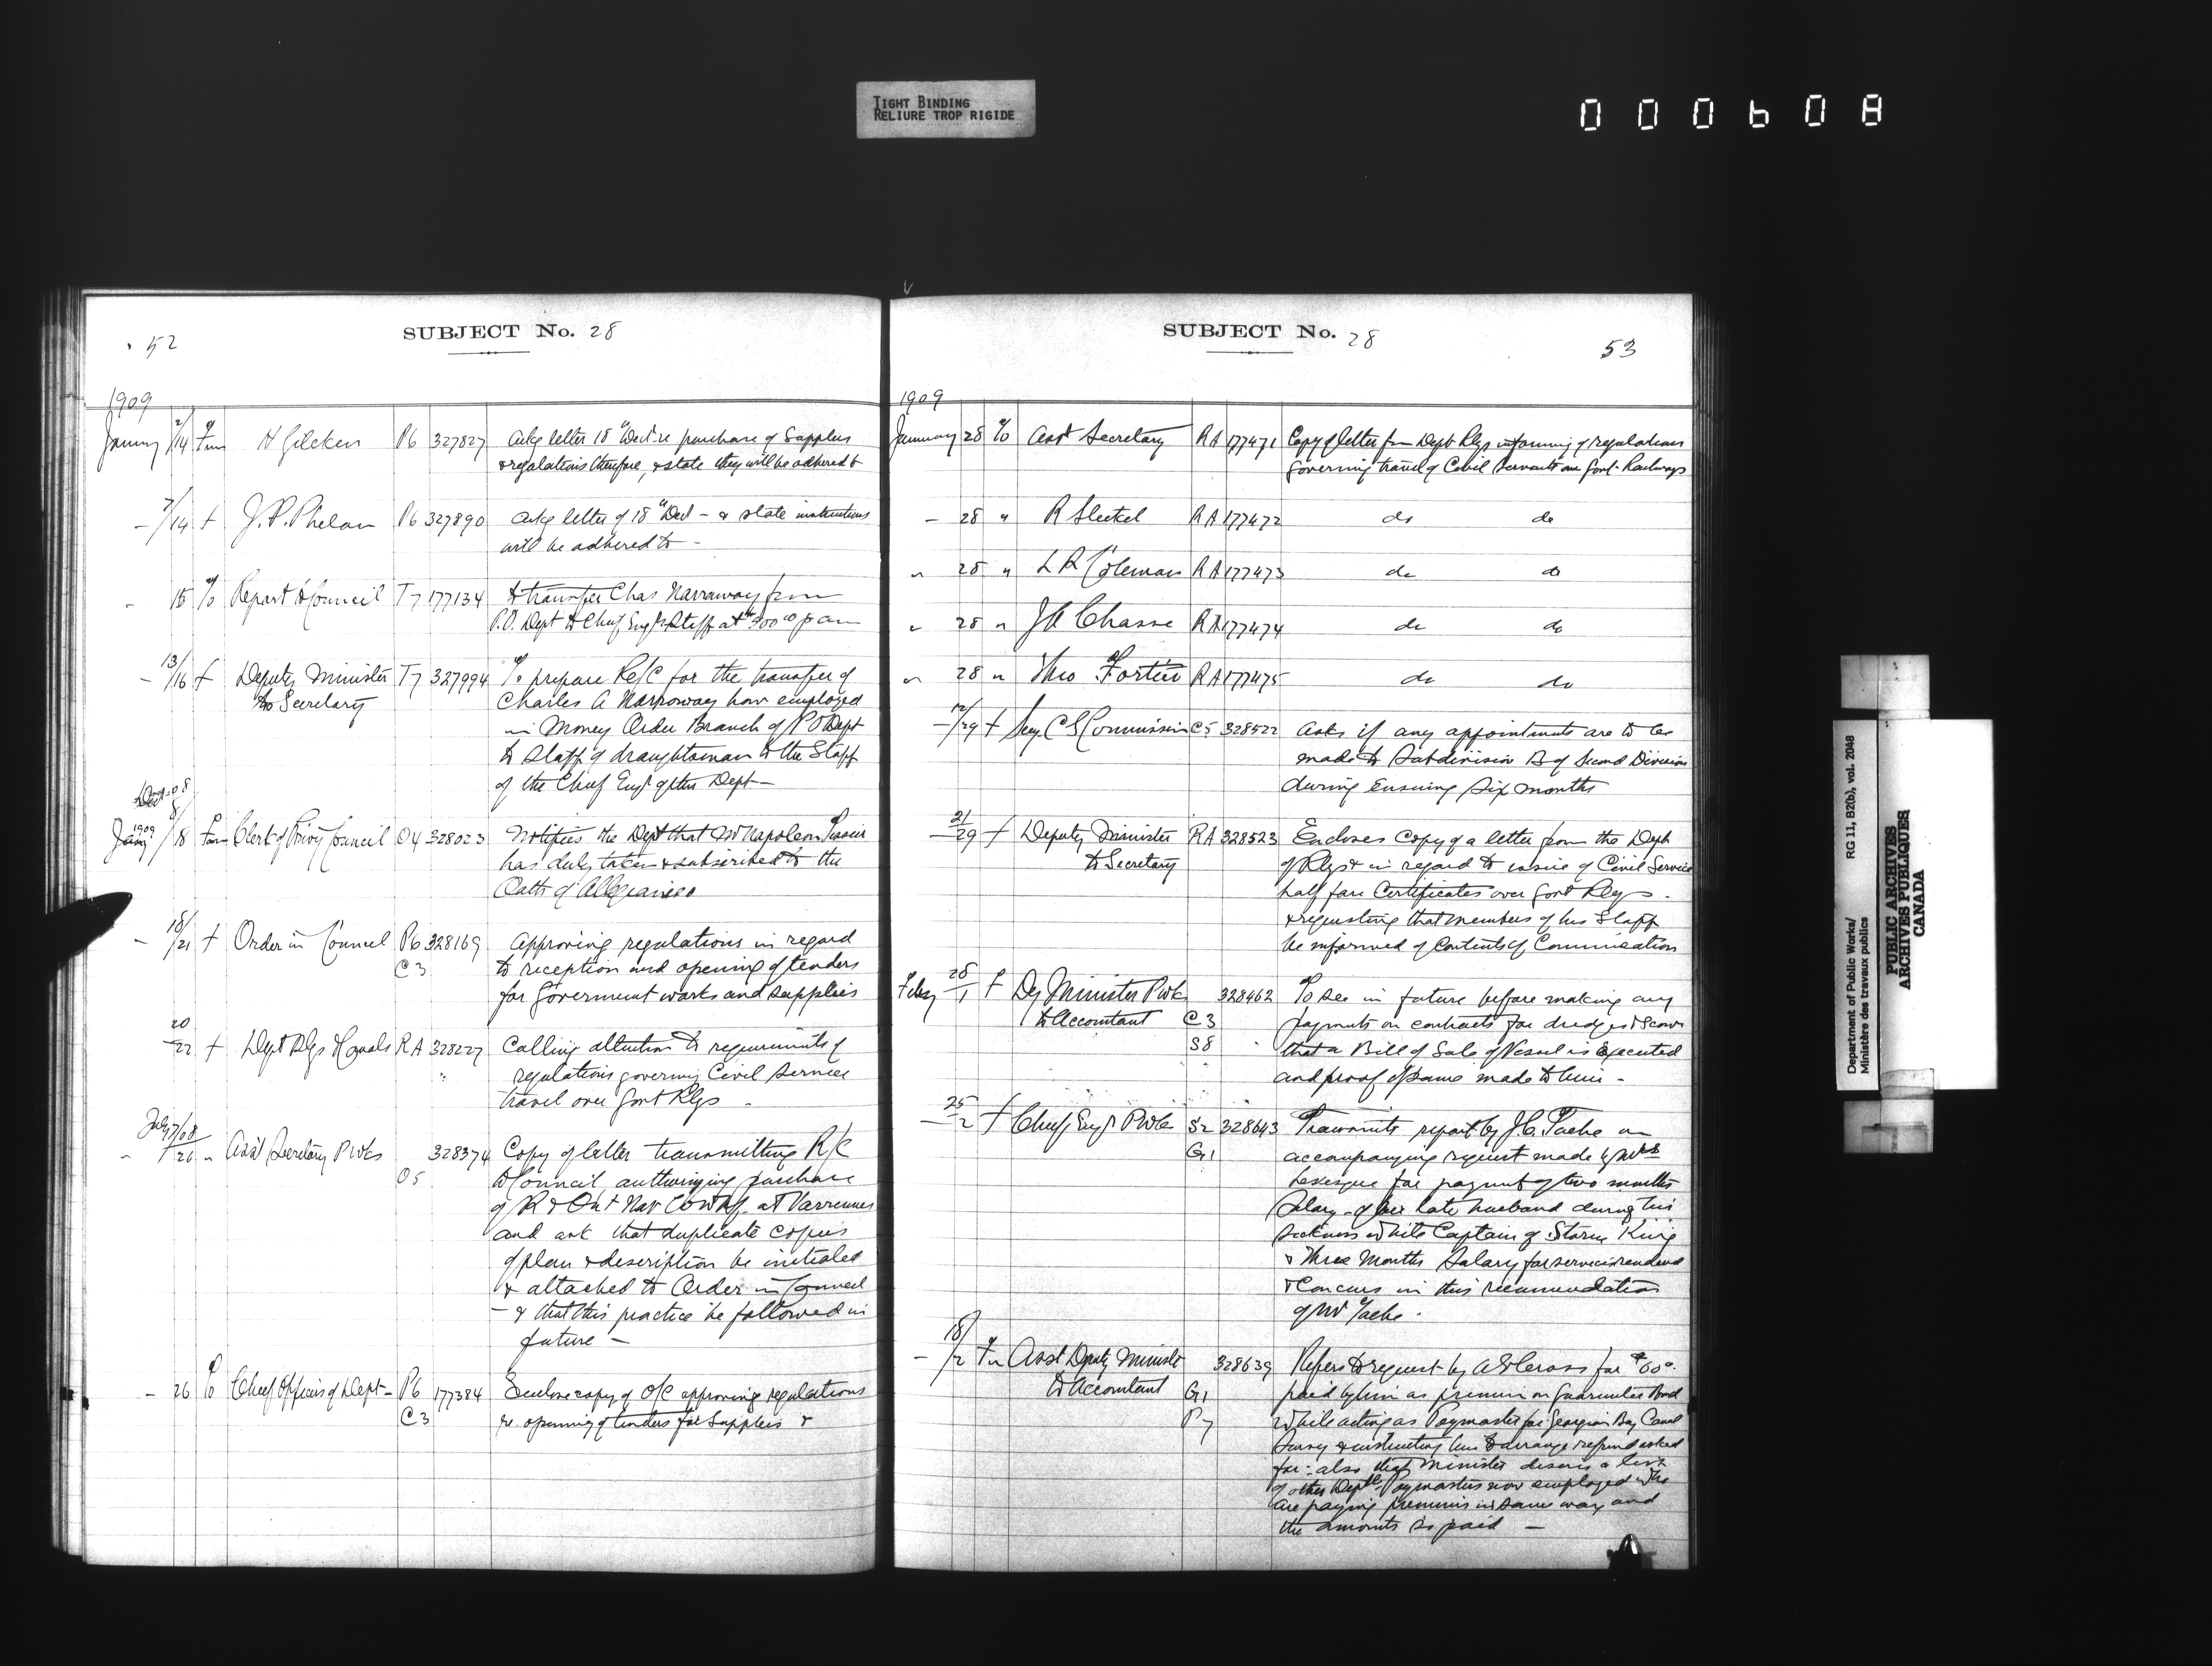 TIGHT BINDING
RELIURE TROP RIGIDE
000608
52
SUBJECT No. 28
1909
January 2/14 Fm H Gilcken P6 327827 Ackg letter 18" Dec re purchase of Supplies
& regulations therefore, & state they will be adhered to
— 7/14 f J. P. Phelan P6 327890 Ackg letter of 18" Dec — & state instructions
will be adhered to —
- 15 To Report to Council T7 177134 to transfer Chas Narraway from
P.O. Dept to Chief Engr Staff at $900.00 p an
— 13/16 f Deputy Minister T7 327994 To prepare Re/C for the transfer of
to Secretary Charles A Narroway now employed
in Money Order Branch of P O Dept
to Staff of draughtsman to the Staff
of the Chief Engr of this Dept —
Dec 08
8/
1909
Jany / 18 Fm Clerk of Privy Council O4 328023 Notifies the Dept that Mr Napoleon
has duly taken & subscribed to the
Oath of Allegiance
— 18/21 f Order in Council P6 328169 Approving regulations in regard
C3 to reception and opening of tenders
for Government works and supplies
20/22 f Dept Rlys & Canals RA 328227 Calling attention to requirements of
" regulations governing Civil Service
travel over Govt Rlys —
July 7/08
" /26 " Asst Secretary P Wks 328374 Copy of letter transmitting R/C
O5 to Council authorizing purchase
of R & Ont Nav Co Whf. at Varennes
and ask that duplicate copies
of plan & description be initialed
& attached to Order in Council
— & that this practice be followed in
future —
— 26 To Chief Officers of Dept — P6 177384 Enclose copy of O/C approving regulations
C3 re opening of tenders for Supplies &
SUBJECT No. 28
53
1909
January 28 To Asst Secretary RA 177471 Copy of letter from Dept Rlys informing of regulations
governing travel of Civil Servants on Govt Railways
— 28 " R Steckel RA 177472 do do
" 28 " L R Coleman RA 177473 do do
" 28 " J A Chasse RA 177474 do do
" 28 " Theo Fortier RA 177475 do do
— 12/29 f Secy C S Commission C5 328522 Asks if any appointments are to be
made to Subdivision B of Second Division
during ensuing six months
— 21/29 f Deputy Minister RA 328523 Encloses Copy of a letter from the Dept
to Secretary of Rlys & in regard to issue of Civil Service
half fare Certificates over Govt Rlys —
& requesting that members of his Staff
be informed of contents of Communication
Feby 28/1 f Dep Minister P Wks 328462 To see in future before making any
to Accountant C3 payments on contracts for dredges & Scows
S8 that a Bill of Sale of Vessel is executed
and proof of same made to him —
— 25/2 f Chief Engr P Wks S2 328643 Transmits report by J. C. Tache on
G1 accompanying request made by Mrs
Levesque for payment of two months
Salary of her late husband during his
sickness while Captain of Storm King
& Three Months Salary for services rendered
& Concurs in this recommendation
of Mr Tache.
— 18/2 Fm Asst Deputy Minister 328639 Refers to request by A E Cross for $60.
to Accountant G1 paid by him as premium on Guarantee Bond
P7 while acting as Paymaster for Georgian Bay Canal
Survey & instructing him to arrange refund asked
for: also that Minister desires a list
of other Deptl. Paymasters now employed who
are paying premiums in same way and
the amounts so paid —
Department of Public Works/
Ministère des travaux publics
RG 11, B2(b), vol. 2048
PUBLIC ARCHIVES
ARCHIVES PUBLIQUES
CANADA